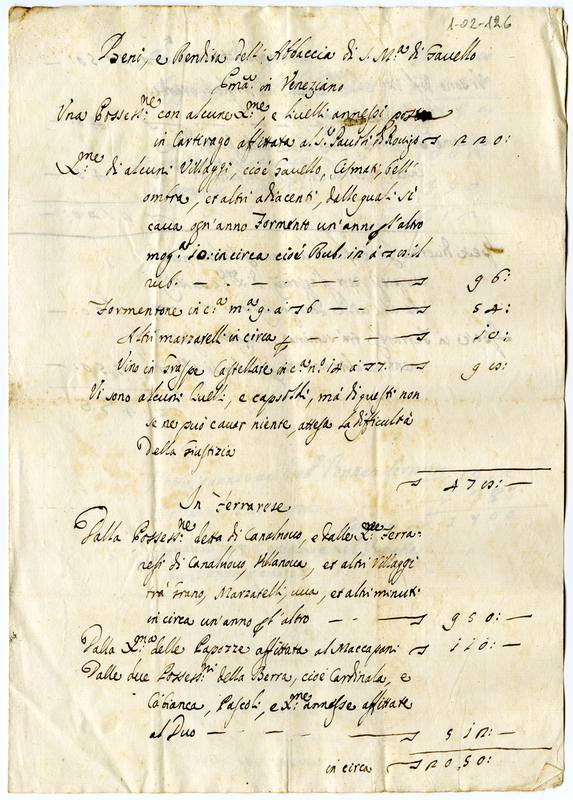 1-02-126
Beni, e Rendita dell'Abbaccia di S. M.ª di Gavello
P.mª in Veneziano
Una Possess.ne con alcune X.me, e Livelli annessi posta
in Cartirago affittata al S.r di Rovigo s 220:
X.me di alcuni Villaggi, cioè Gavello, Bell'
ombra, et altri adiacenti, dalle quali si
cava ogn'anno Formento un'anno p l'altro
mog.ª 10: in circa cioè Rub. 12 à s
rub. — — — — — s 96:
Formentone in c.ª m.ª 9. à s 6 — — — s 54:
Altri marzatelli in circa — — — s 10:
Vino in Graspe Castellate in c.ª n.º 14 à s 7. — s 90:
Vi sono alcuni livelli, e capsoldi, mà di questi non
se ne può cavar niente, attesa la difficultà
della Giustizia
s 470: —
In Ferrarese
Dalla Possess.ne detta di Canalnovo, e dalle X.me Ferra-
resi di Canalnovo, Villanova, et altri Villaggi
trà Grano, Marzatelli, uva, et altri minuti
in circa un'anno p l'altro — — s 950: —
Dalla X.ma delle Papozze affittata al Maccapani s 110: —
Dalle due Possess.ni della Berra, cioè Cardinala, e
Càbianca, Pascoli, e X.me annesse affittate
al Duo — — — — — s 512: —
in circa s 2050: